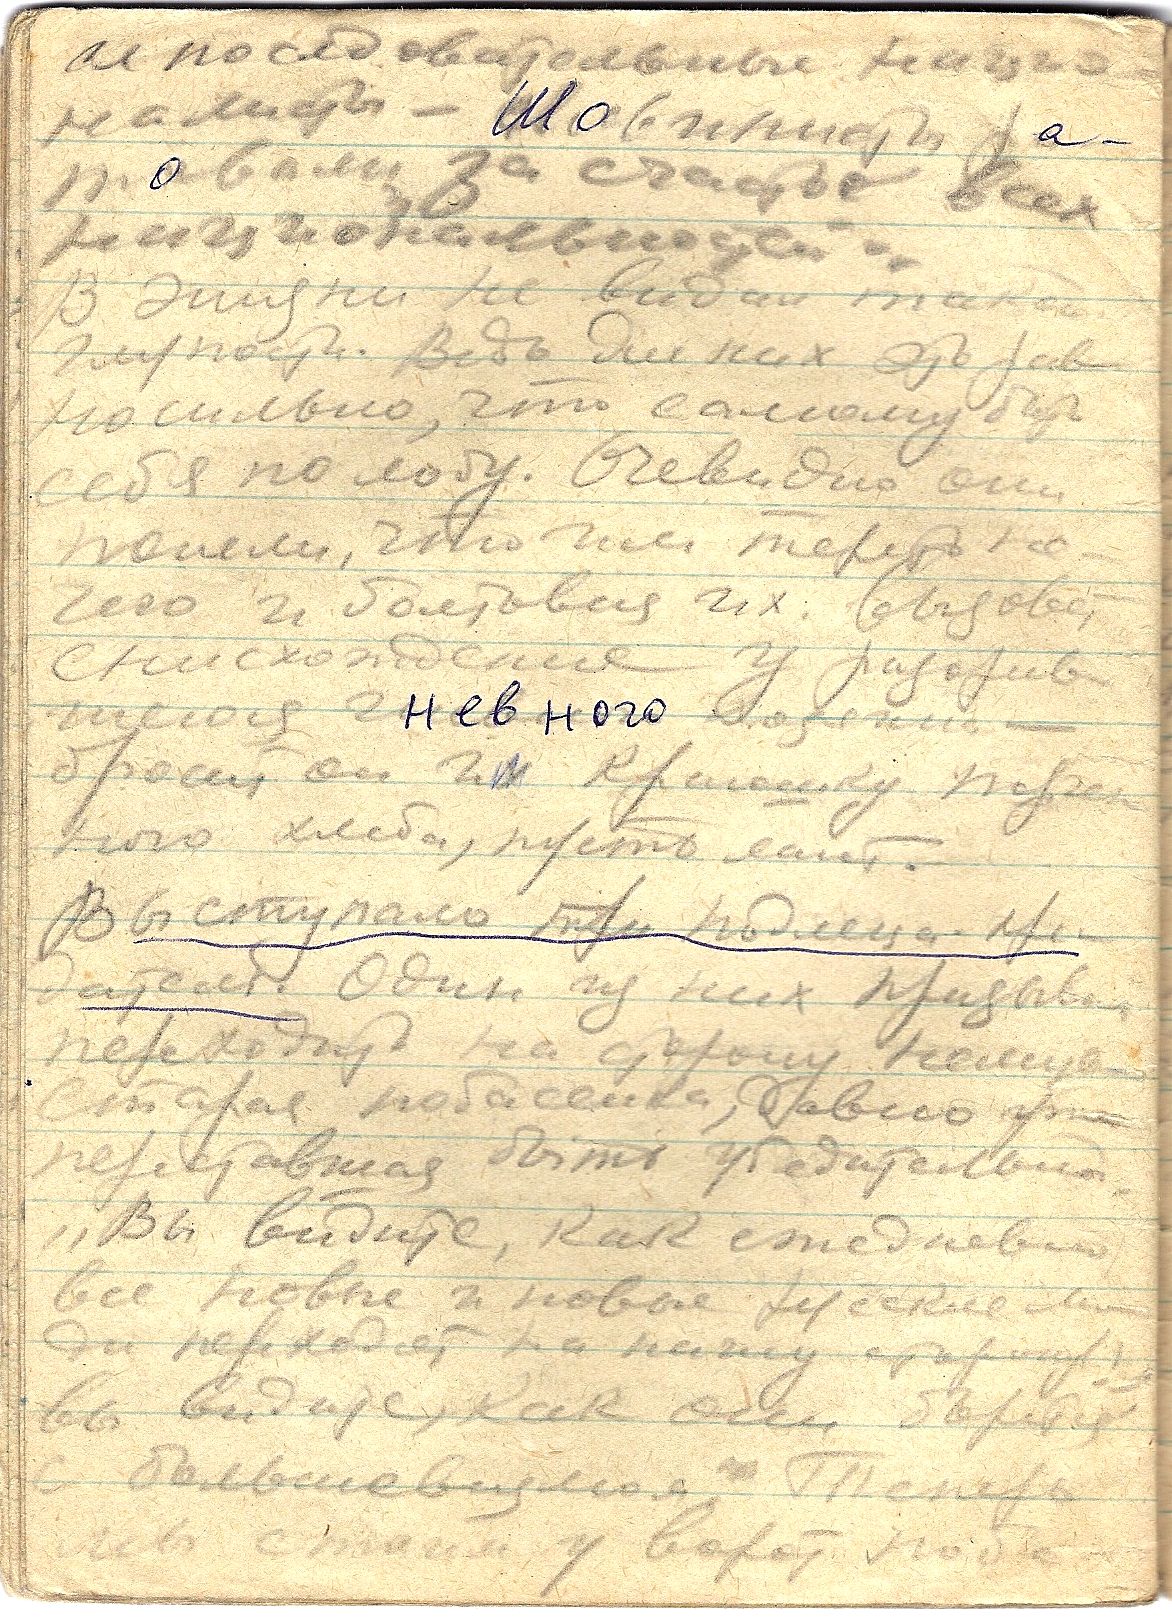 и последовательные нацио-
налисты – Шовинисты ра-
товали за счастье всех
национальностей".
В жизни не видал такой
глупости. Ведь для них это рав
носильно, что самому бить
себя по лбу. Очевидно они
поняли, что им терять не-
чего и болтовня их вызовет
снисхождение у разгрев
невного
бросит он им крошку
ного хлеба, пусть лают.
Выступало три подлеца-пре-
дателя. Один из них призывал
переходить на сторону немцев
старая побасенка, давно уже
переставшая быть убедительной.
„Вы видите, как ежедневно
все новые и новые русские лю
ди переходят на нашу сторону,
вы видите, как они борятся
с большевизмом". Теперь
мы стоим у ворот побе-